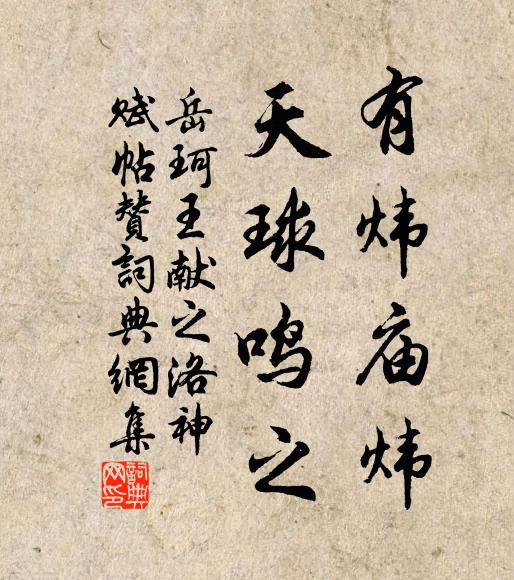 有炜庙炜
天球鸣之
岳珂王献之洛神
赋帖赞詞典網集
詞典网印